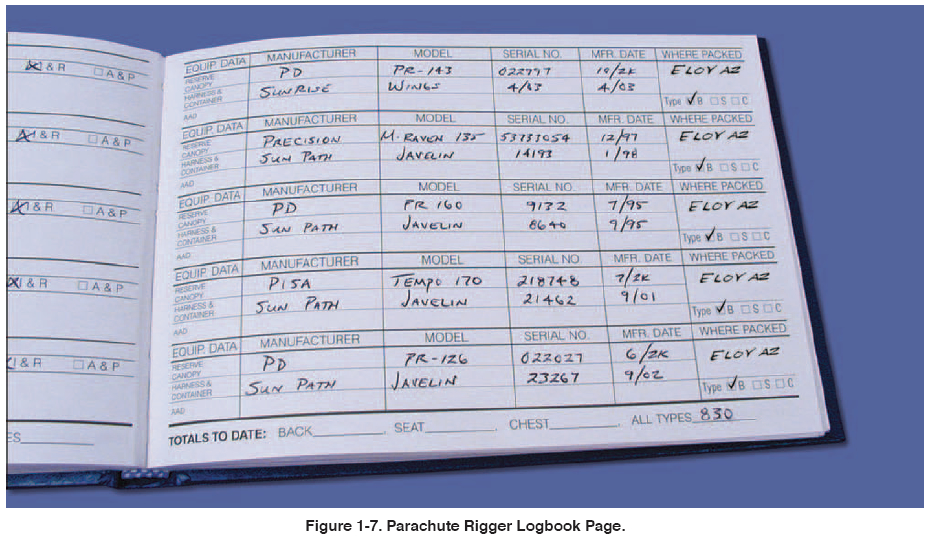 I & R A & P
EQUIP. DATA MANUFACTURER MODEL SERIAL NO. MFR. DATE WHERE PACKED
RESERVE CANOPY PD PR-143 022797 10/2K ELOY AZ
HARNESS & CONTAINER SUNRISE WINGS 4/03 4/03
AAD Type B S C
A & P
EQUIP. DATA MANUFACTURER MODEL SERIAL NO. MFR. DATE WHERE PACKED
RESERVE CANOPY PRECISION M. RAVEN 135 53733054 12/97 ELOY AZ
HARNESS & CONTAINER SUN PATH JAVELIN 14193 1/98
AAD Type B S C
I & R A & P
EQUIP. DATA MANUFACTURER MODEL SERIAL NO. MFR. DATE WHERE PACKED
RESERVE CANOPY PD PR 160 9132 7/95 ELOY AZ
HARNESS & CONTAINER SUN PATH JAVELIN 8640 9/95
AAD Type B S C
I & R A & P
EQUIP. DATA MANUFACTURER MODEL SERIAL NO. MFR. DATE WHERE PACKED
RESERVE CANOPY PISA TEMPO 170 218748 7/2K ELOY AZ
HARNESS & CONTAINER SUN PATH JAVELIN 21462 9/01
AAD Type B S C
I & R A & P
EQUIP. DATA MANUFACTURER MODEL SERIAL NO. MFR. DATE WHERE PACKED
RESERVE CANOPY PD PR-126 022027 6/2K ELOY AZ
HARNESS & CONTAINER SUN PATH JAVELIN 23267 9/02
AAD Type B S C
TOTALS TO DATE: BACK SEAT CHEST ALL TYPES 830
Figure 1-7. Parachute Rigger Logbook Page.